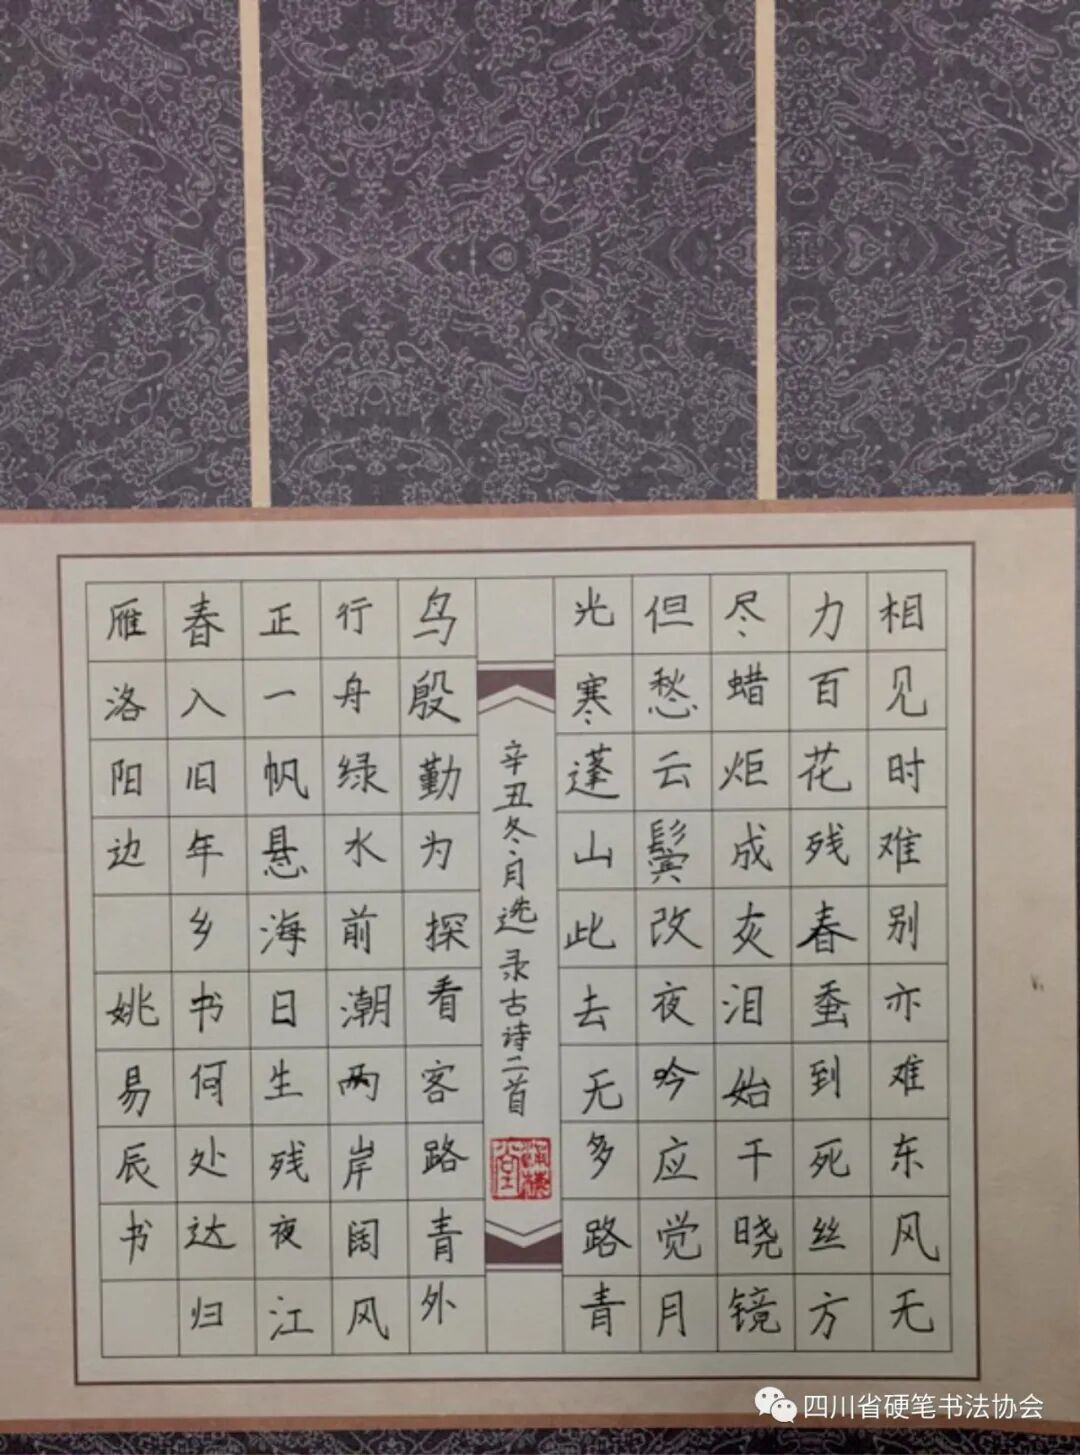 相见时难别亦难东风无
力百花残春蚕到死丝方
尽蜡炬成灰泪始干晓镜
但愁云鬓改夜吟应觉月
光寒蓬山此去无多路青
辛丑冬月选录古诗二首
鸟殷勤为探看客路青外
行舟绿水前潮两岸阔风
正一帆悬海日生残夜江
春入旧年乡书何处达归
雁洛阳边 姚易辰书
四川省硬笔书法协会